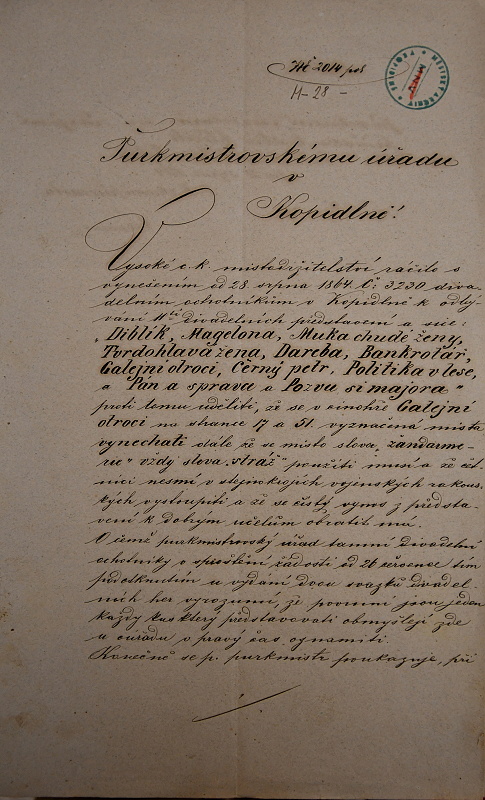 Nč 2014 pol
H-28-
MĚSTSKÝ ARCHIV
Purkmistrovskému úřadu
v
Kopidlně!
Vysoké c. k. místodržitelství ráčilo s
vynešením od 28. srpna 1864 Č: 3230 diva-
delním ochotníkům v Kopidlně k odbý-
vání 11ti divadelních představení a sice:
„Diblík, Magelona, Muka chudé ženy,
Tvrdohlavá žena, Dareba, Bankrotář,
Galejní otroci, Černý petr, Politika v lese,
a Pan a sprava a Pozvu si majora"
proti tomu uděliti, že se v činohře Galejní
otroci na strance 17 a 51. vyznačená místa
vynechati dále že se místo slova „žandarme-
rie" vždy slova „stráž" použíti musí a že úct-
níci nesmí v stejnokrojích vojenských rakous-
kých vystoupiti a že se čistý vynos z předsta-
vení k dobrým účelům obrátit má.
O čemž purkmistrovský úřad tamní divadelní
ochotníky o žádosti od 26 července tím
podotknutím a vydání dvou svazků divadel-
ních her vyrozumí, že povinni jsou jeden
každý kus který představovati obmýšlejí zde
u ouřadu o pravý čas oznamiti.
Konečně se p. purkmistr poukazuje, při